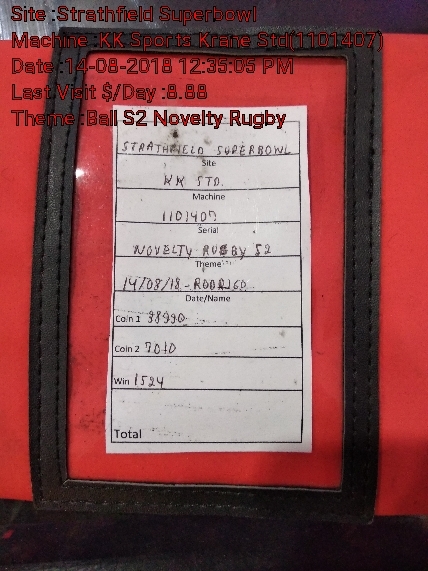 Site :Strathfield Superbowl
Machine :KK Sports Krane Std(1101407)
Date :14-08-2018 12:35:05 PM
Last Visit $/Day :8.88
Theme :Ball S2 Novelty Rugby
STRATHFIELD SUPERBOWL
Site
KK STD.
Machine
1101407
Serial
NOVELTY RUGBY S2
Theme
14/08/18 - RODRIGO
Date/Name
Coin 1 38990
Coin 2 7010
Win 1524
Total